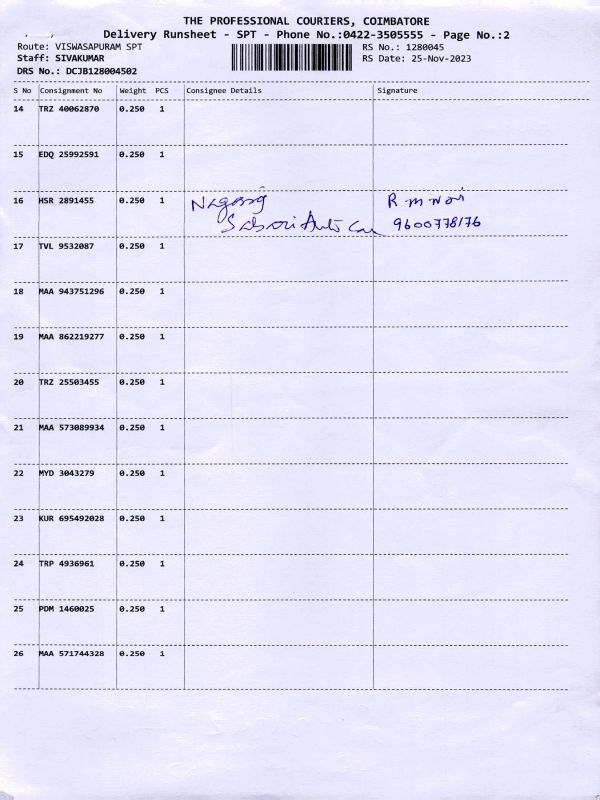 THE PROFESSIONAL COURIERS, COIMBATORE
Delivery Runsheet - SPT - Phone No.:0422-3505555 - Page No.:2
Route: VISWASAPURAM SPT
RS No.: 1280045
Staff: SIVAKUMAR
RS Date: 25-Nov-2023
DRS No.: DCJB128004502
S No Consignment No Weight PCS Consignee Details Signature
14 TRZ 40062870 0.250 1
15 EDQ 25992591 0.250 1
16 HSR 2891455 0.250 1
R
Auto 9600778176
17 TVL 9532087 0.250 1
18 MAA 943751296 0.250 1
19 MAA 862219277 0.250 1
20 TRZ 25503455 0.250 1
21 MAA 573089934 0.250 1
22 MYD 3043279 0.250 1
23 KUR 695492028 0.250 1
24 TRP 4936961 0.250 1
25 PDM 1460025 0.250 1
26 MAA 571744328 0.250 1